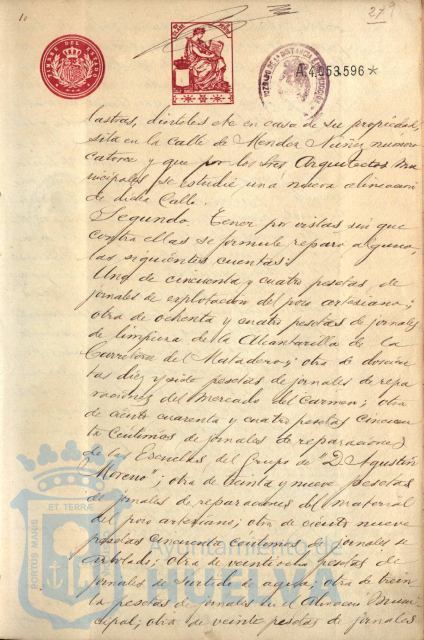 10
27
A.4.053.596*
lastras, dinteles etc en casa de su propiedad,
sita en la calle de Mendez Nuñez numero
catorce y que por los tres Arquitectos Mu-
nicipales se estudie una nueva alineacion
de dicha Calle.
Segundo. Tener por vistas sin que
contra ellas se formule reparo alguno,
las siguientes cuentas:
Una de cincuenta y cuatro pesetas de
jornales de explotacion del pozo artesiano;
otra de ochenta y cuatro pesetas de jornales
de limpieza de la Alcantarilla de la
Carretera del Matadero; otra de doscien
tas diez y siete pesetas de jornales de repa
raciones del Mercado del Carmen; otra
de ciento cuarenta y cuatro pesetas cincuen
ta centimos de jornales de reparaciones
de las Escuelas del Grupo de "D. Agustin
Moreno"; otra de veinta y nueve pesetas
de jornales de reparaciones del material
del pozo artesiano; otra de ciento nueve
pesetas cincuenta centimos de jornales de
arbolado; otra de veintiocho pesetas de
jornales de surtido de agua; otra de trein
ta pesetas de jornales en el Almacen Muni
cipal; otra de veinte pesetas de jornales
PORTUS MARIS ET TERRAE
Ayuntamiento de
HUELVA